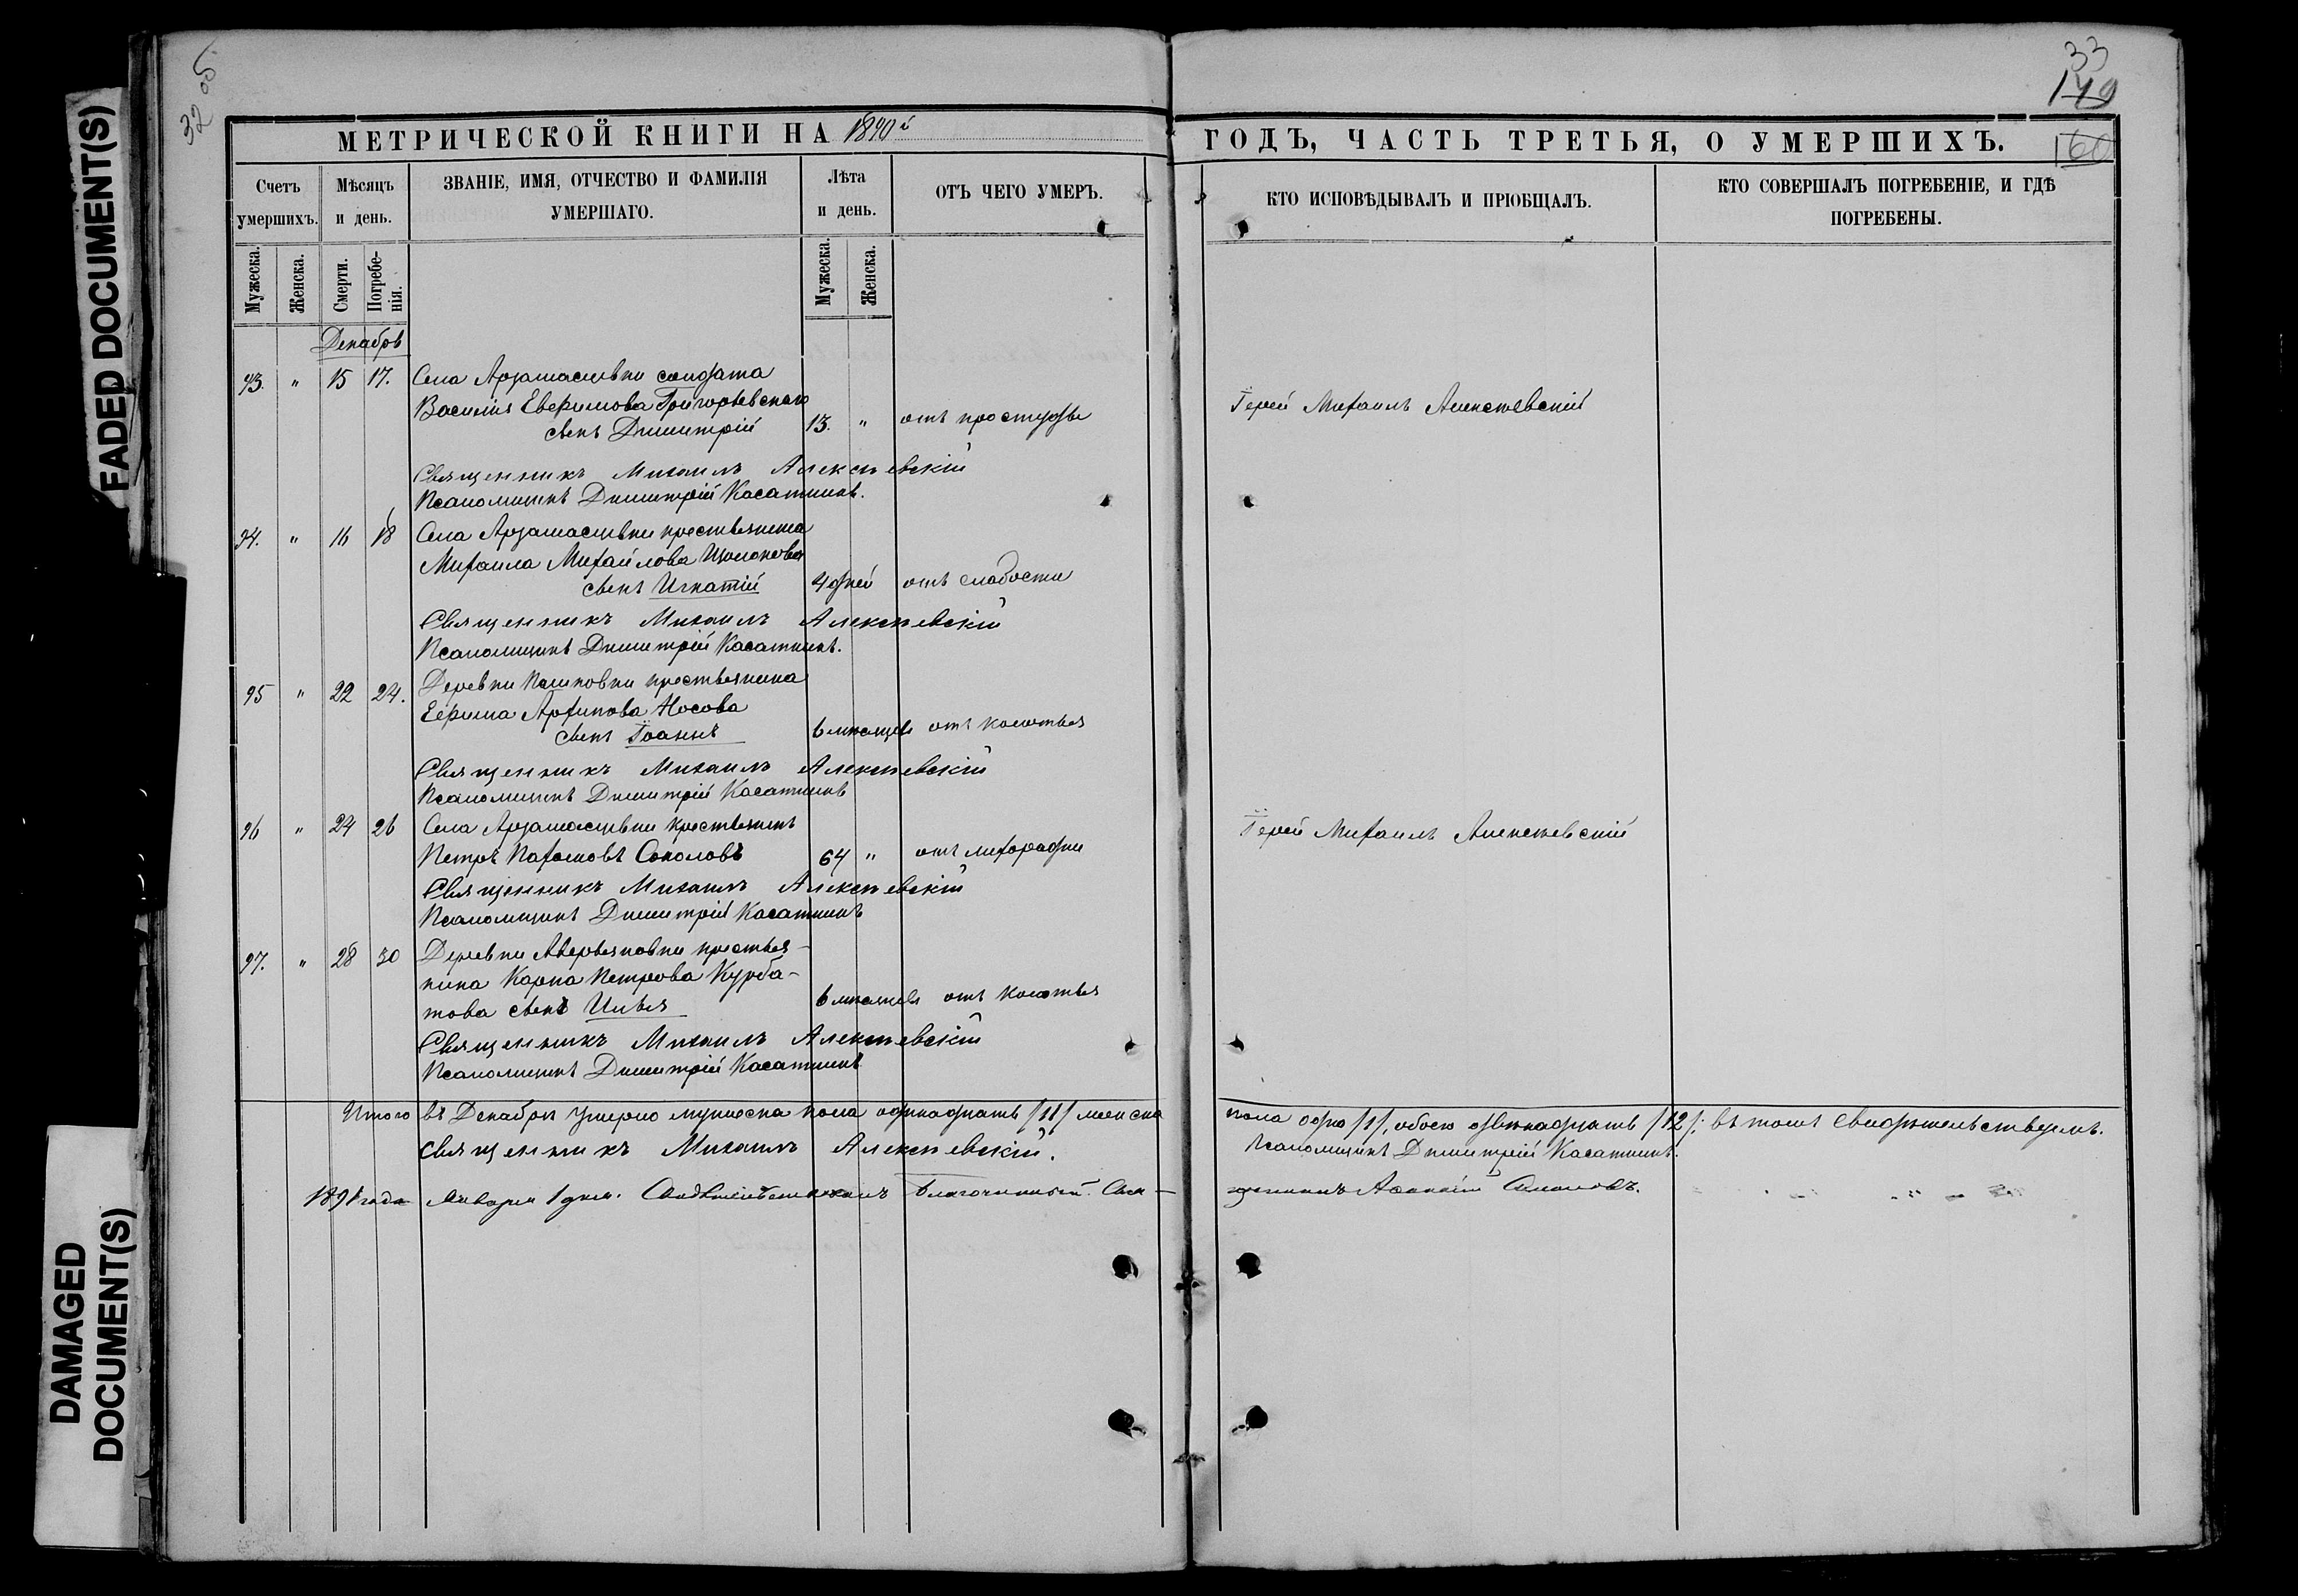 FADED DOCUMENT(S)
DAMAGED
DOCUMENT(S)
32 об
33
149
160
МЕТРИЧЕСКОЙ КНИГИ НА 1890й
ГОДЪ, ЧАСТЬ ТРЕТЬЯ, О УМЕРШИХЪ.
Счетъ умершихъ.
Мѣсяцъ и день.
ЗВАНІЕ, ИМЯ, ОТЧЕСТВО И ФАМИЛІЯ УМЕРШАГО.
Лѣта и день.
ОТЪ ЧЕГО УМЕРЪ.
КТО ИСПОВѢДЫВАЛЪ И ПРІОБЩАЛЪ.
КТО СОВЕРШАЛЪ ПОГРЕБЕНІЕ, И ГДѢ ПОГРЕБЕНЫ.
Мужеска.
Женска.
Смерти.
Погребенія.
Мужеска.
Женска.
Декабрь
93. " 15 17. Села Арзамасцевки солдата
Василія Евфимова Григорьевскаго
сынъ Димитрій 13. " отъ простуды
Іерей Михаилъ Алексѣевскій
Священникъ Михаилъ Алексѣевскій
Псаломщикъ Димитрій Касаткинъ.
94. " 16 18 Села Арзамасцевки крестьянина
Михаила Михайлова
сынъ Игнатій 4 дней отъ слабости
Священникъ Михаилъ Алексѣевскій
Псаломщикъ Димитрій Касаткинъ.
95 " 22 24. Деревни крестьянина
Ефима Архипова Носова
сынъ Іоаннъ 6 мѣсяцевъ отъ колотья
Священникъ Михаилъ Алексѣевскій
Псаломщикъ Димитрій Касаткинъ
96 " 24 26 Села Арзамасцевки крестьянинъ
Петръ Пахомовъ Соколовъ 64 " отъ лихорадки
Іерей Михаилъ Алексѣевскій
Священникъ Михаилъ Алексѣевскій
Псаломщикъ Димитрій Касаткинъ
97. " 28 30 Деревни Аверьяновки крестья-
нина Карпа Петрова Курба-
това сынъ Илья 6 мѣсяцевъ отъ колотья
Священникъ Михаилъ Алексѣевскій
Псаломщикъ Димитрій Касаткинъ
Итого въ Декабрѣ умерло мужеска пола одиннадцать /11/ женска
пола одна /1/, обоего двѣнадцать /12/; въ томъ свидѣтельствуемъ.
Священникъ Михаилъ Алексѣевскій.
Псаломщикъ Димитрій Касаткинъ.
1891 года Января 1 дня. Свидѣтельствовалъ Благочинный Свя-
щенникъ